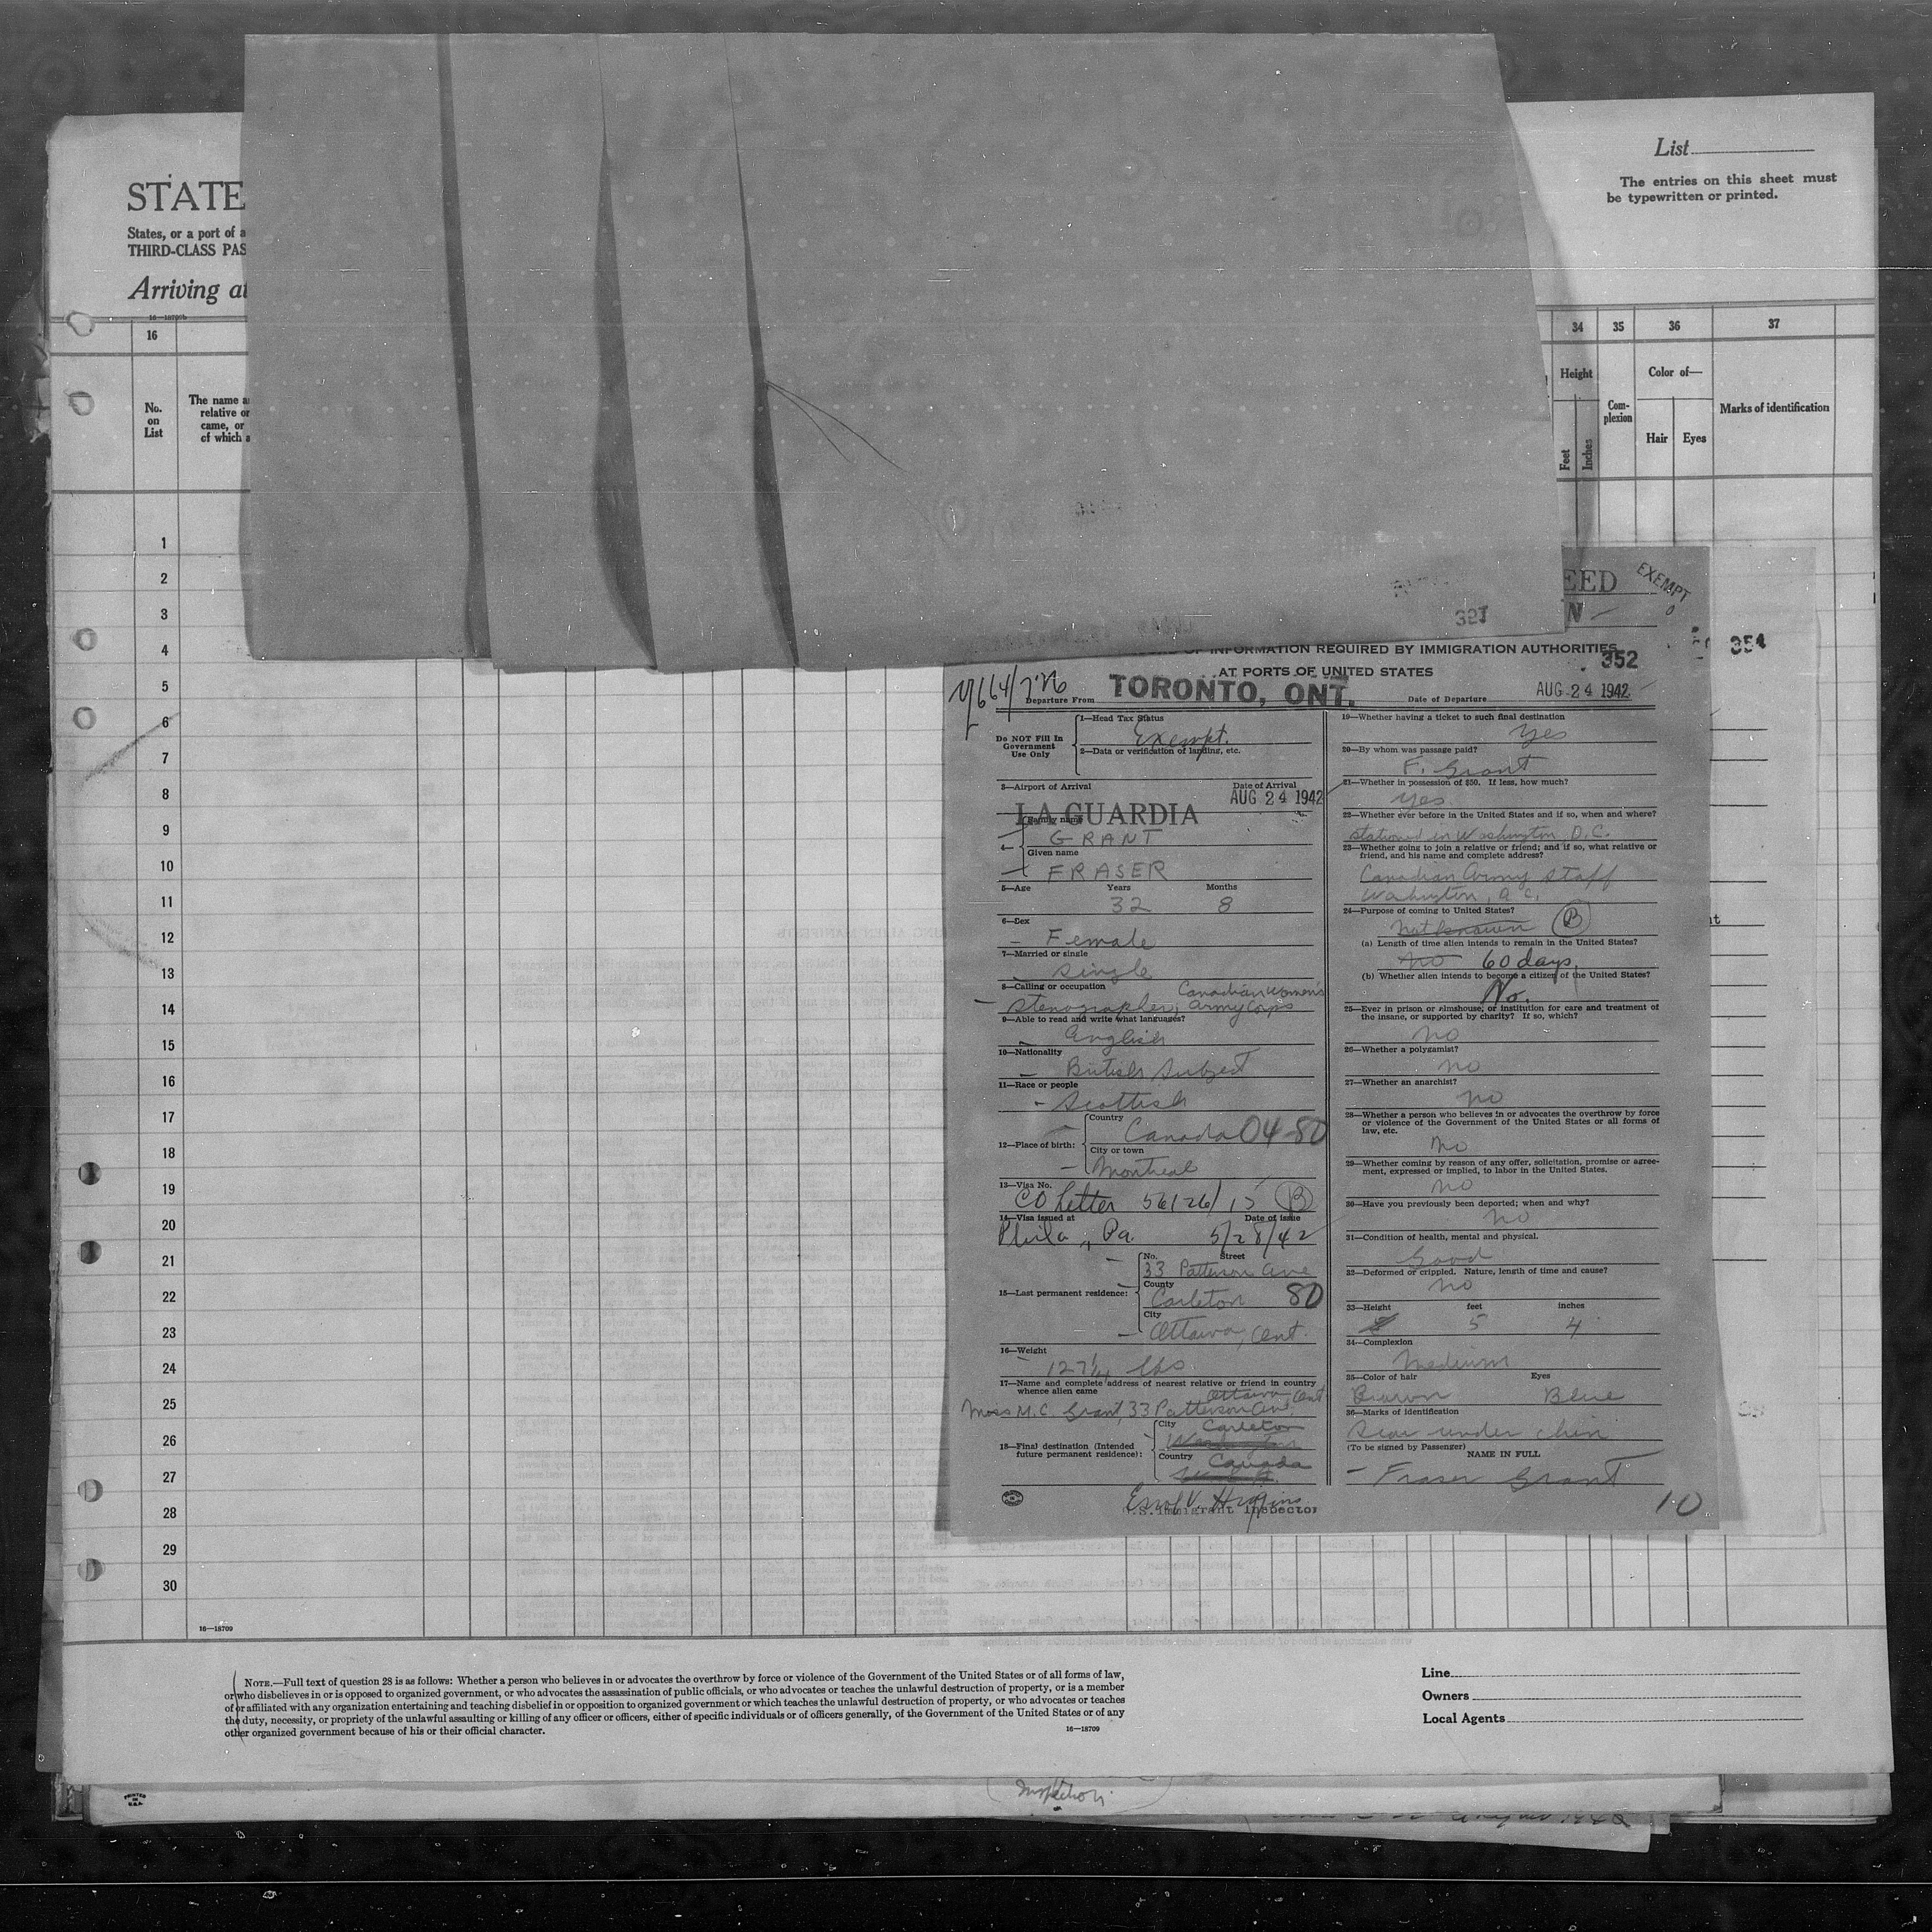 List
The entries on this sheet must
be typewritten or printed.
STATE
States, or a port of a
THIRD-CLASS PAS
Arriving at
16—18709b
16
34 35 36 37
No.
on
List
The name a
relative or
came, or
of which a
Height
Feet
Inches
Com-
plexion
Color of—
Hair Eyes
Marks of identification
1
2
3
4
5
6
7
8
9
10
11
12
13
14
15
16
17
18
19
20
21
22
23
24
25
26
27
28
29
30
321
EED
EXEMPT
N
354
OF INFORMATION REQUIRED BY IMMIGRATION AUTHORITIES
352
AT PORTS OF UNITED STATES
Departure From TORONTO, ONT. Date of Departure AUG 24 1942
Do NOT Fill In
Government
Use Only
1—Head Tax Status
Exempt.
2—Data or verification of landing, etc.
3—Airport of Arrival Date of Arrival
LA GUARDIA AUG 24 1942
4— Family name
GRANT
Given name
FRASER
5—Age Years Months
32 8
6—Sex
Female
7—Married or single
Single
8—Calling or occupation Canadian Women's
Stenographer, Army Corps
9—Able to read and write what languages?
English
10—Nationality
British Subject
11—Race or people
Scottish
12—Place of birth: Country
Canada 04-80
City or town
Montreal
13—Visa No.
CO Letter 56126/15 B
14—Visa issued at Date of issue
Phila., Pa. 5/28/42
15—Last permanent residence: No. Street
33 Patterson Ave
County
Carleton 80
City
Ottawa, Ont.
16—Weight
127¼ lbs
17—Name and complete address of nearest relative or friend in country
whence alien came Ottawa Ont
M.C. Grant, 33 Patterson Ave.
18—Final destination (Intended
future permanent residence):
City Carleton
Country Canada
U.S. Immigrant Inspector
19—Whether having a ticket to such final destination
Yes
20—By whom was passage paid?
F. Grant
21—Whether in possession of $50. If less, how much?
Yes
22—Whether ever before in the United States and if so, when and where?
Stationed in Washington D.C.
23—Whether going to join a relative or friend; and if so, what relative or
friend, and his name and complete address?
Canadian Army Staff
Washington, D.C.
24—Purpose of coming to United States?
Not known B
(a) Length of time alien intends to remain in the United States?
No 60 days
(b) Whether alien intends to become a citizen of the United States?
No.
25—Ever in prison or almshouse, or institution for care and treatment of
the insane, or supported by charity? If so, which?
no
26—Whether a polygamist?
no
27—Whether an anarchist?
no
28—Whether a person who believes in or advocates the overthrow by force
or violence of the Government of the United States or all forms of
law, etc.
no
29—Whether coming by reason of any offer, solicitation, promise or agree-
ment, expressed or implied, to labor in the United States.
no
30—Have you previously been deported; when and why?
no
31—Condition of health, mental and physical.
Good
32—Deformed or crippled. Nature, length of time and cause?
no
33—Height feet inches
5 4
34—Complexion
Medium
35—Color of hair Eyes
Brown Blue
36—Marks of identification
Scar under chin
(To be signed by Passenger)
NAME IN FULL
Fraser Grant
10
16—18709
NOTE.—Full text of question 28 is as follows: Whether a person who believes in or advocates the overthrow by force or violence of the Government of the United States or of all forms of law,
or who disbelieves in or is opposed to organized government, or who advocates the assassination of public officials, or who advocates or teaches the unlawful destruction of property, or is a member
of or affiliated with any organization entertaining and teaching disbelief in or opposition to organized government or which teaches the unlawful destruction of property, or who advocates or teaches
the duty, necessity, or propriety of the unlawful assaulting or killing of any officer or officers, either of specific individuals or of officers generally, of the Government of the United States or of any
other organized government because of his or their official character.
16—18709
Line
Owners
Local Agents
PRINTED
IN
U.S.A.
Inspection